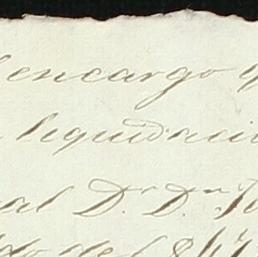 encargo
liquidacio
al D.r D.n
do de 1847